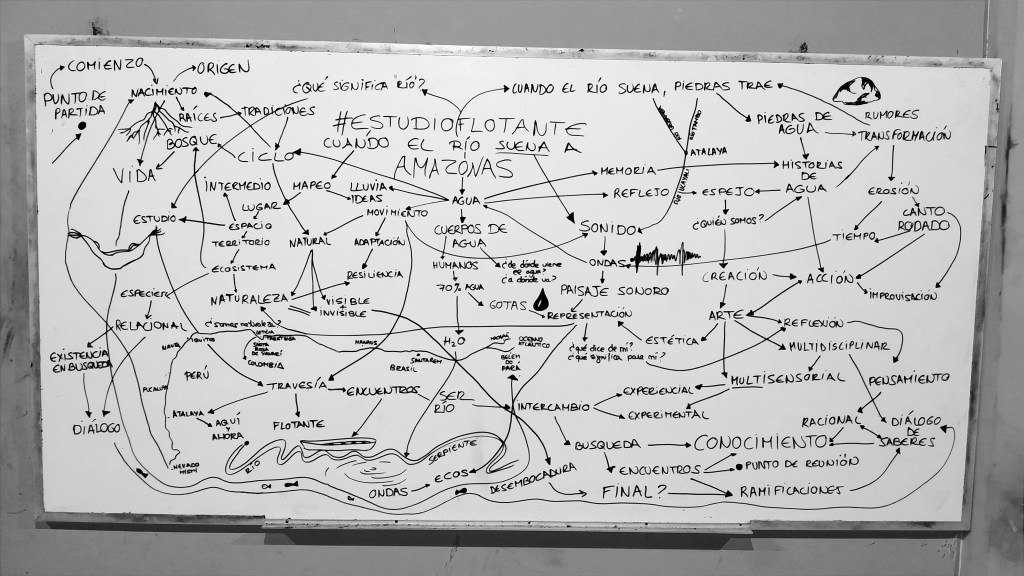 COMIENZO
NACIMIENTO
ORIGEN
PUNTO DE
PARTIDA
RAÍCES
TRADICIONES
BOSQUE
¿QUÉ SIGNIFICA RÍO?
CUANDO EL RÍO SUENA, PIEDRAS TRAE
#ESTUDIOFLOTANTE
CUÁNDO EL RÍO SUENA A
AMAZONAS
PIEDRAS DE
AGUA
RUMORES
TRANSFORMACIÓN
ATALAYA
VIDA
CICLO
INTERMEDIO
MAPEO
LLUVIA
IDEAS
LUGAR
ESTUDIO
ESPACIO
TERRITORIO
NATURAL
MOVIMIENTO
ADAPTACIÓN
RESILIENCIA
AGUA
CUERPOS DE
AGUA
HUMANOS
70% AGUA
¿de dónde viene
el agua?
¿a dónde va?
GOTAS
MEMORIA
REFLEJO
ESPEJO
HISTORIAS
DE
AGUA
¿QUIÉN SOMOS?
EROSIÓN
CANTO
RODADO
TIEMPO
SONIDO
ONDAS
PAISAJE SONORO
REPRESENTACIÓN
CREACIÓN
ACCIÓN
IMPROVISACIÓN
ECOSISTEMA
NATURALEZA
VISIBLE
+
INVISIBLE
ESPECIES
RELACIONAL
¿somos naturaleza?
EXISTENCIA
EN BUSQUEDA
DIÁLOGO
NAUTA
IQUITOS
LETICIA
TABATINGA
SANTA
ROSA
DE YAVARÍ
COLOMBIA
PERÚ
PUCALLPA
MANAUS
SANTAREM
BRASIL
MACAPÁ
OCÉANO
ATLÁNTICO
BELÉM
DO
PARÁ
H₂O
¿qué dice de mí?
¿qué significa para mí?
ESTÉTICA
ARTE
REFLEXIÓN
MULTIDISCIPLINAR
MULTISENSORIAL
PENSAMIENTO
TRAVESÍA
ENCUENTROS
SER
RÍO
INTERCAMBIO
EXPERIENCIAL
EXPERIMENTAL
RACIONAL
DIÁLOGO
DE
SABERES
ATALAYA
AQUÍ
Y
AHORA
FLOTANTE
NEVADO
MISMI
RÍO
SERPIENTE
ONDAS
ECOS
DESEMBOCADURA
BUSQUEDA
CONOCIMIENTO
ENCUENTROS
PUNTO DE REUNIÓN
FINAL?
RAMIFICACIONES